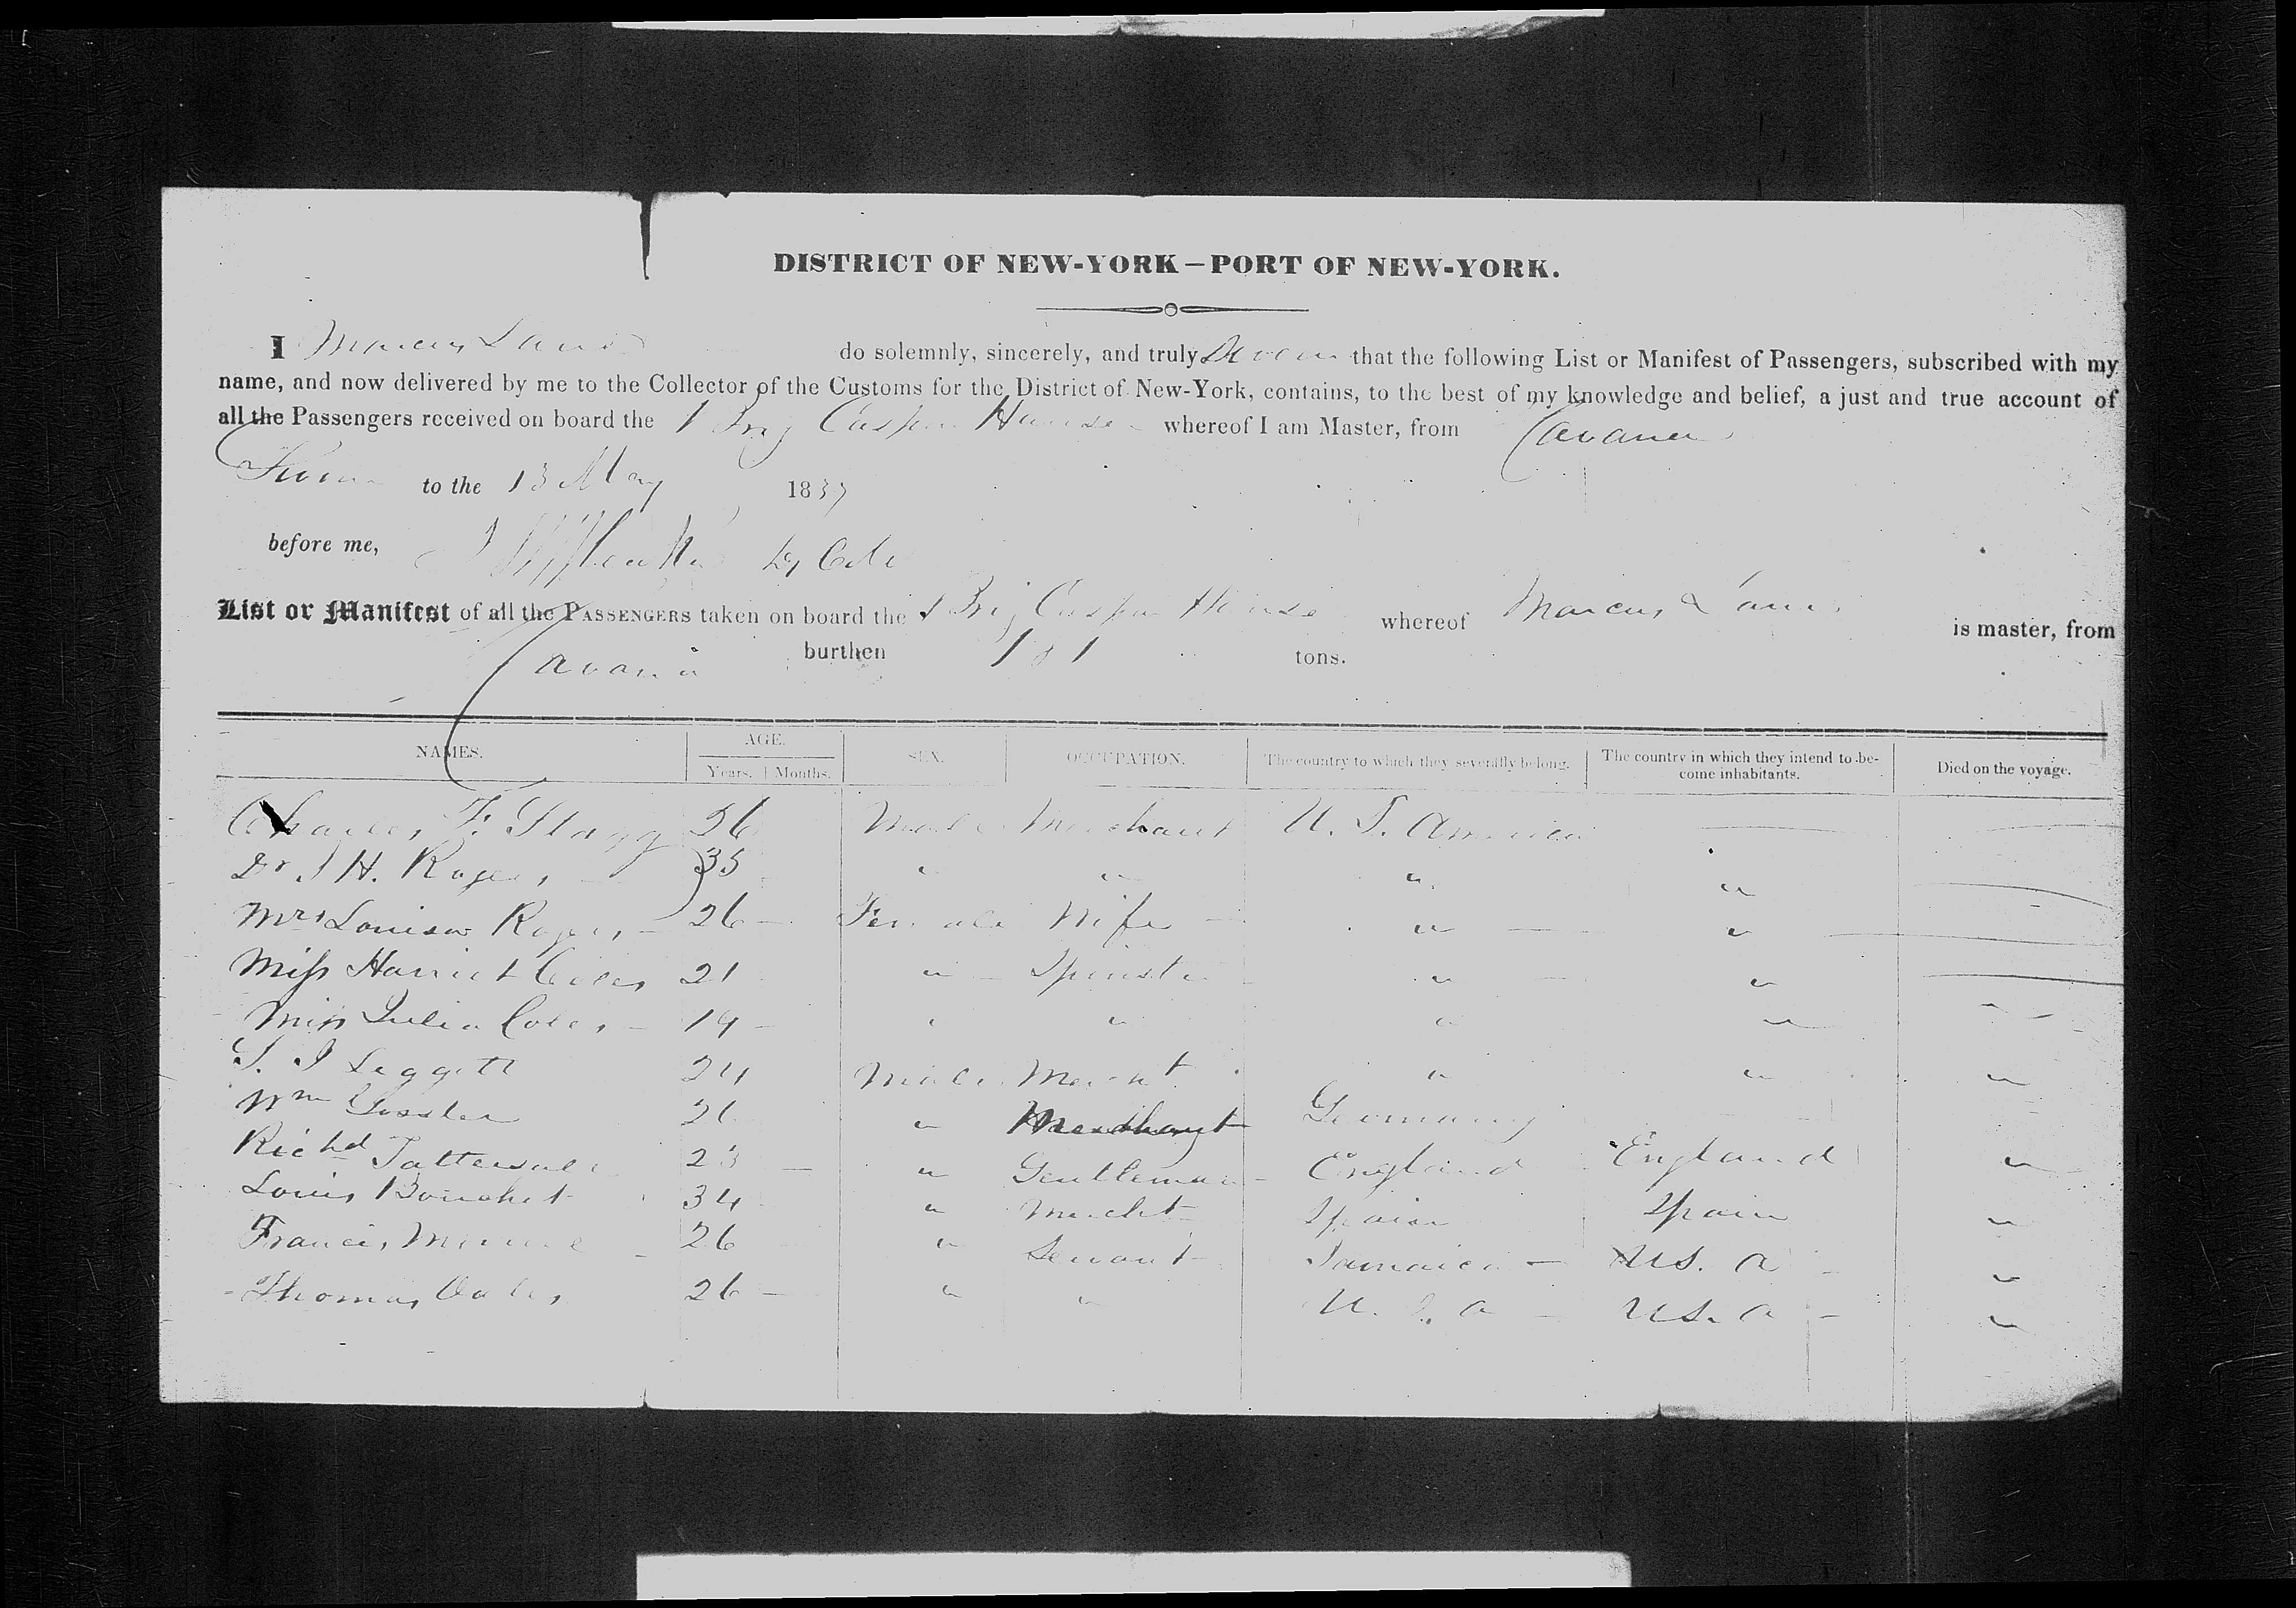 DISTRICT OF NEW-YORK—PORT OF NEW-YORK.
I Marcus do solemnly, sincerely, and truly Swear that the following List or Manifest of Passengers, subscribed with my
name, and now delivered by me to the Collector of the Customs for the District of New-York, contains, to the best of my knowledge and belief, a just and true account of
all the Passengers received on board the Brig whereof I am Master, from
Sworn to the 13 May 1837
before me,
List or Manifest of all the PASSENGERS taken on board the Brig whereof Marcus is master, from
burthen 181 tons.
NAMES. AGE. SEX. OCCUPATION. The country to which they severally belong. The country in which they intend to be-come inhabitants. Died on the voyage.
Years. Months.
Charles F. Flagg 26 Male Merchant U. S. America —
Dr J H. Rogers 35 " " " "
Mrs Louisa Rogers 26 Female Wife " "
Miss Harriet Coles 21 " Spinster " "
Miss Julia Coles 19 " " " " "
S. J Leggett 24 Male Mercht " " "
Wm Gossler 26 " Merchant Germany
Richd Tattersall 23 " Gentleman England England "
Louis Bouchet 34 " Mercht Spain Spain "
Francis 26 " Servant Jamaica U.S. a "
Thomas 26 " " U. S. a U.S. a "